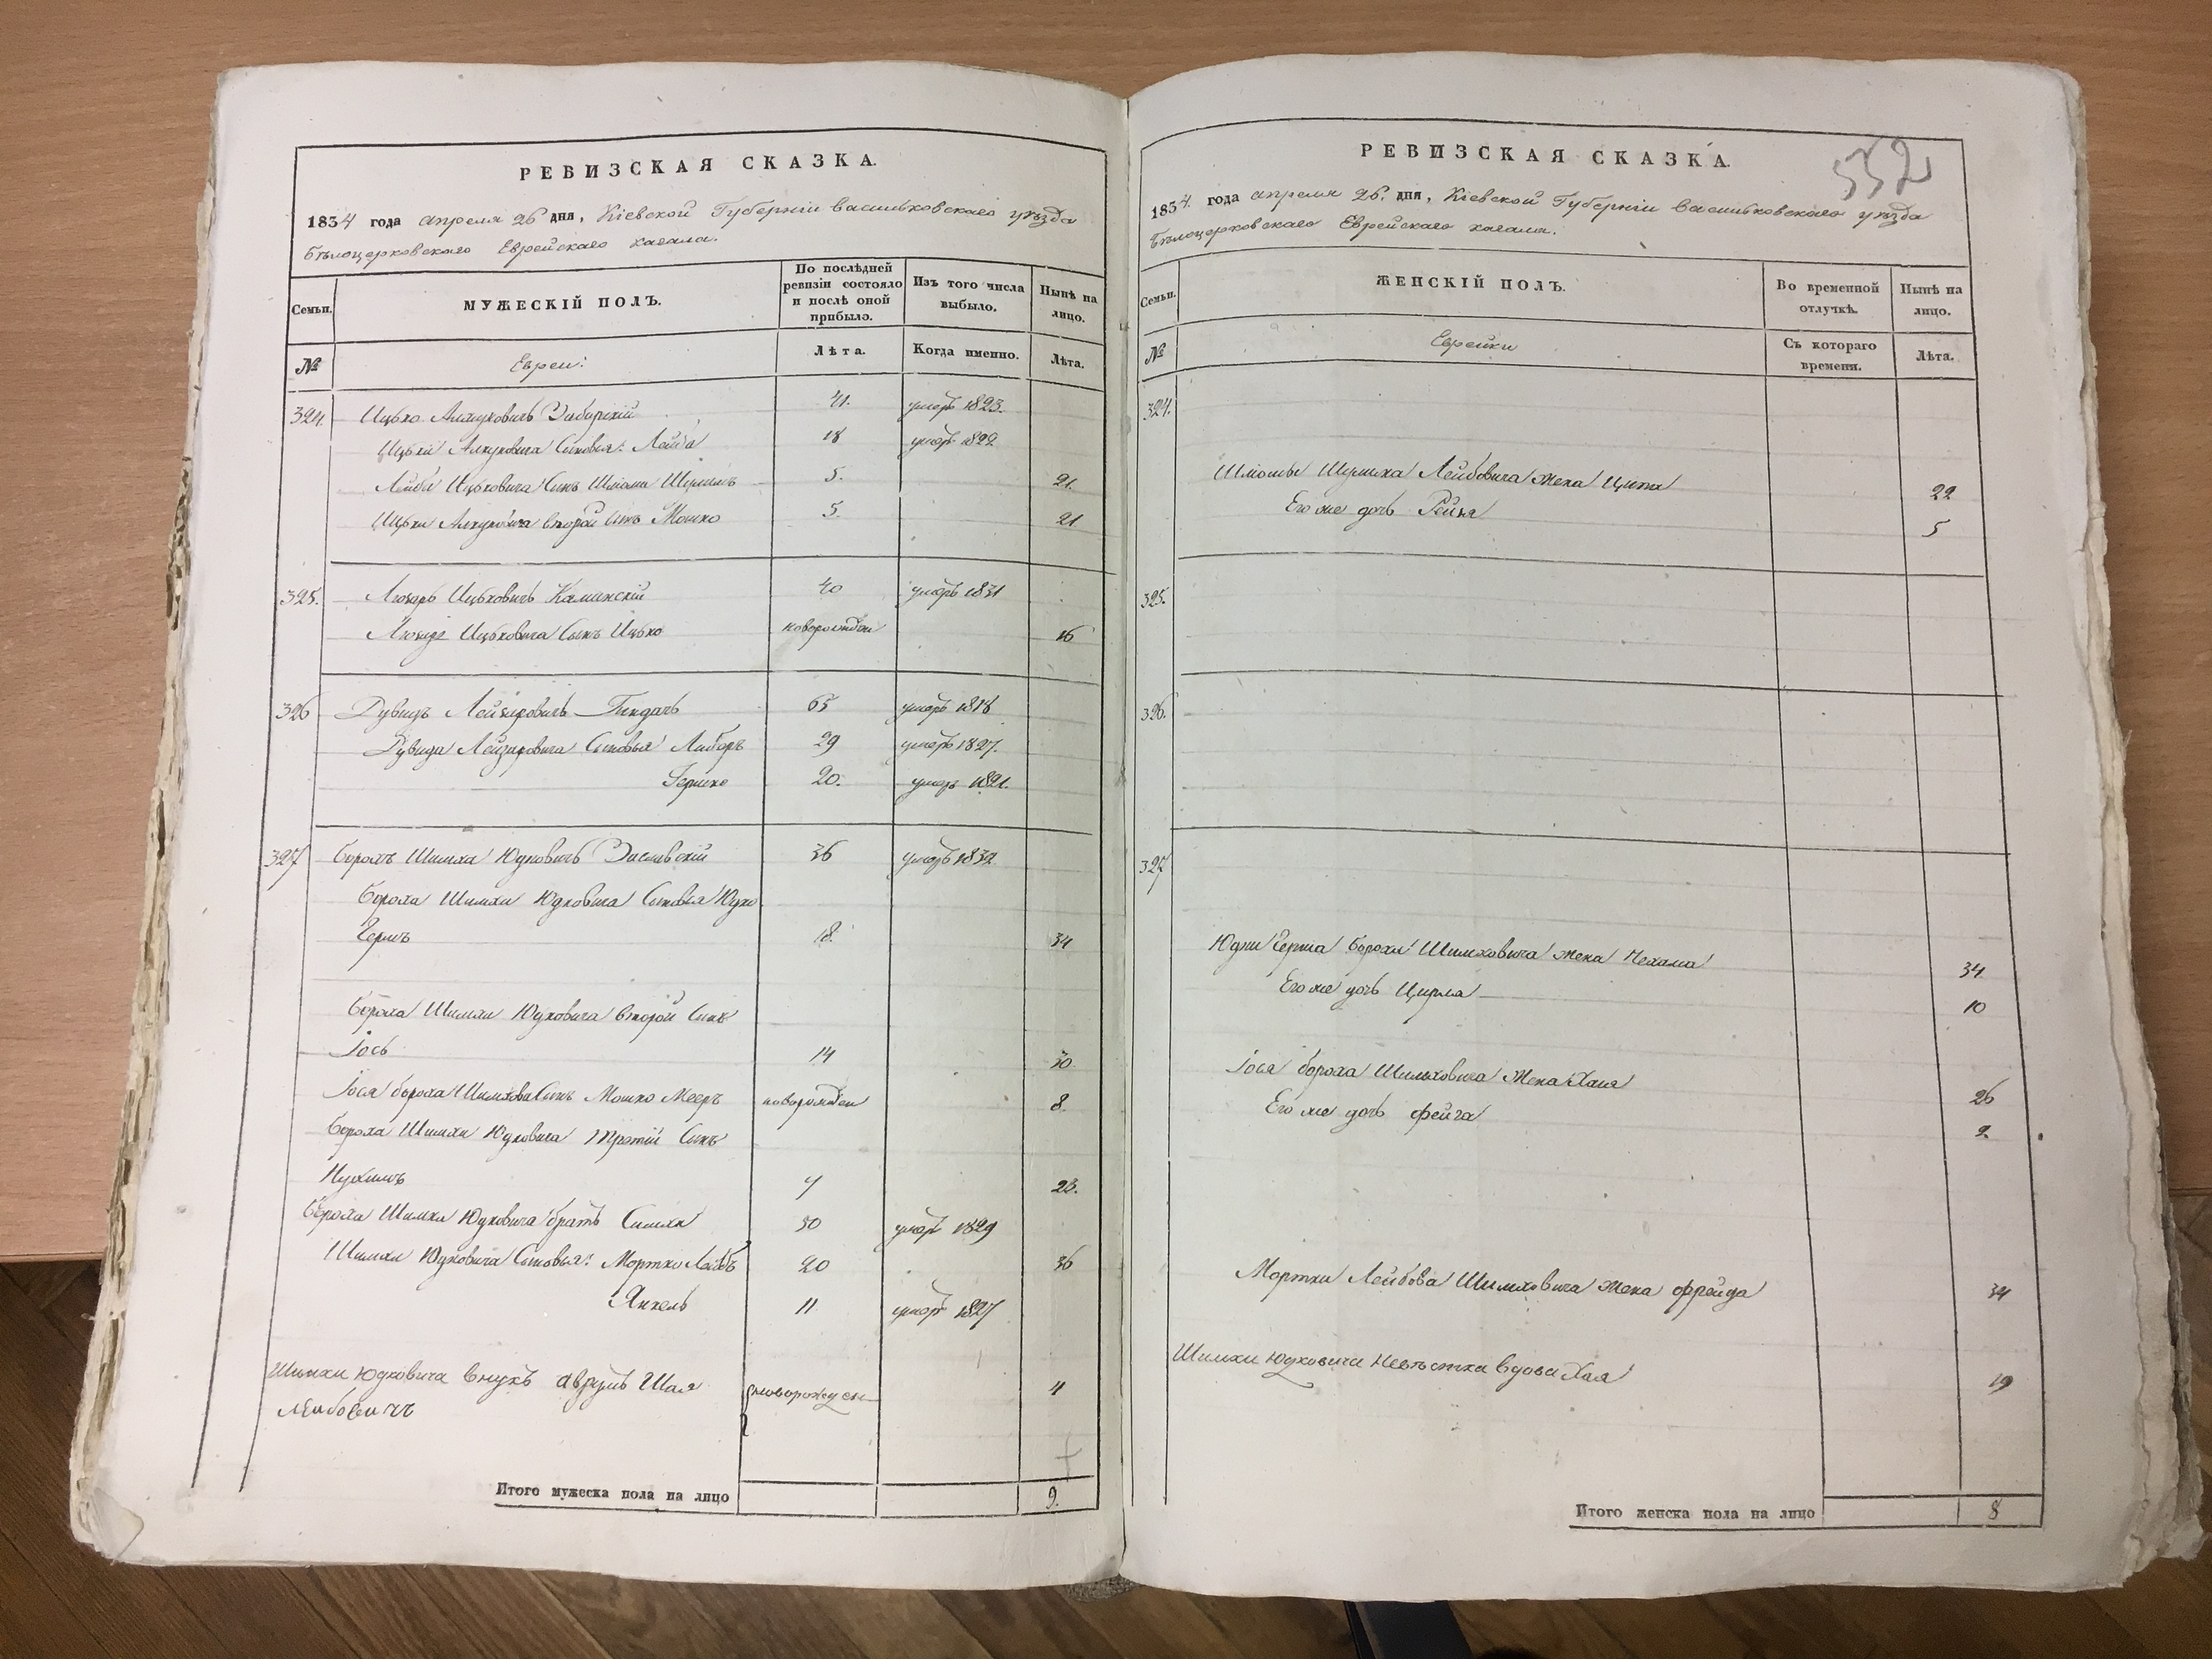 РЕВИЗСКАЯ СКАЗКА.
1834 года апреля 26 дня, Кіевской Губерніи васильковскаго уѣзда
бѣлоцерковскаго Еврейскаго кагала.
Семьи.
МУЖЕСКІЙ ПОЛЪ.
По послѣдней ревизіи состояло и послѣ оной прибыло.
Изъ того числа выбыло.
Нынѣ на лицо.
№
Евреи:
Лѣта.
Когда именно.
Лѣта.
324. Ицько 41. умеръ 1823.
Сыновья: Лейба 18 умеръ 1822
Лейбы Ицьковича Сынъ Шліома 5. 21.
Ицьки второй Сынъ Мошко 5. 21
325. Лезоръ Ицьковичъ Каминскій 40 умеръ 1831
Ицьковича Сынъ Ицько новорожден 16
326 Дувидъ Лейзеровичъ 65 умеръ 1818
Дувида Лейзеровича Сыновья 29 умеръ 1827.
Гершко 20. умеръ 1821.
327 Борохъ Шимха Юдковичъ Заславскій 36 умеръ 1832.
Бороха Шимхи Юдковича Сыновья Юдко
Гершъ 18. 34
Бороха Шимхи Юдковича второй Сынъ
Іось 14 30
Іося бороха Шимхова Сынъ Мошко Мееръ новорожден 8.
Бороха Шимхи Юдковича третій Сынъ
Нухимъ 7 23.
Бороха Шимхи Юдковича братъ 50 умеръ 1829
Шимхи Юдковича Сыновья: Мортко Лейбъ 20 36
Янкель 11 умеръ 1827
Шимхи Юдковича внукъ аврумъ Шая новорожден 4
Лейбовичъ
Итого мужеска пола на лицо 9.
РЕВИЗСКАЯ СКАЗКА.
552
1834. года апреля 26. дня, Кіевской Губерніи васильковскаго уѣзда
Бѣлоцерковскаго Еврейскаго кагала.
Семьи.
ЖЕНСКІЙ ПОЛЪ.
Во временной отлучкѣ.
Нынѣ на лицо.
№
Еврейки
Съ котораго времени.
Лѣта.
324.
Шліомы Лейбовича жена 22
Его же дочь Рейзя 5
325.
326.
327
Юдки Герша Бороха Шимховича жена Нехама 34
Его же дочь Цирля 10
Іося бороха Шимховича жена Хая 26
Его же дочь фейга 2.
Мортки Лейбова Шимховича жена фрейда 34
Шимхи Юдковича невѣстка вдова Хая 19
Итого женска пола на лицо 8